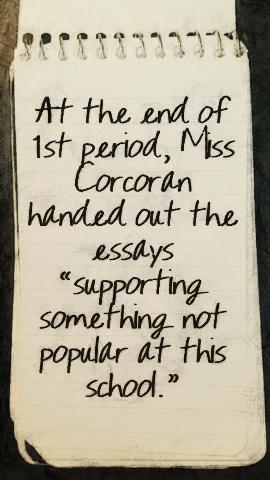 At the end of
1st period, Miss
Corcoran
handed out the
essays
“supporting
something not
popular at this
school.”